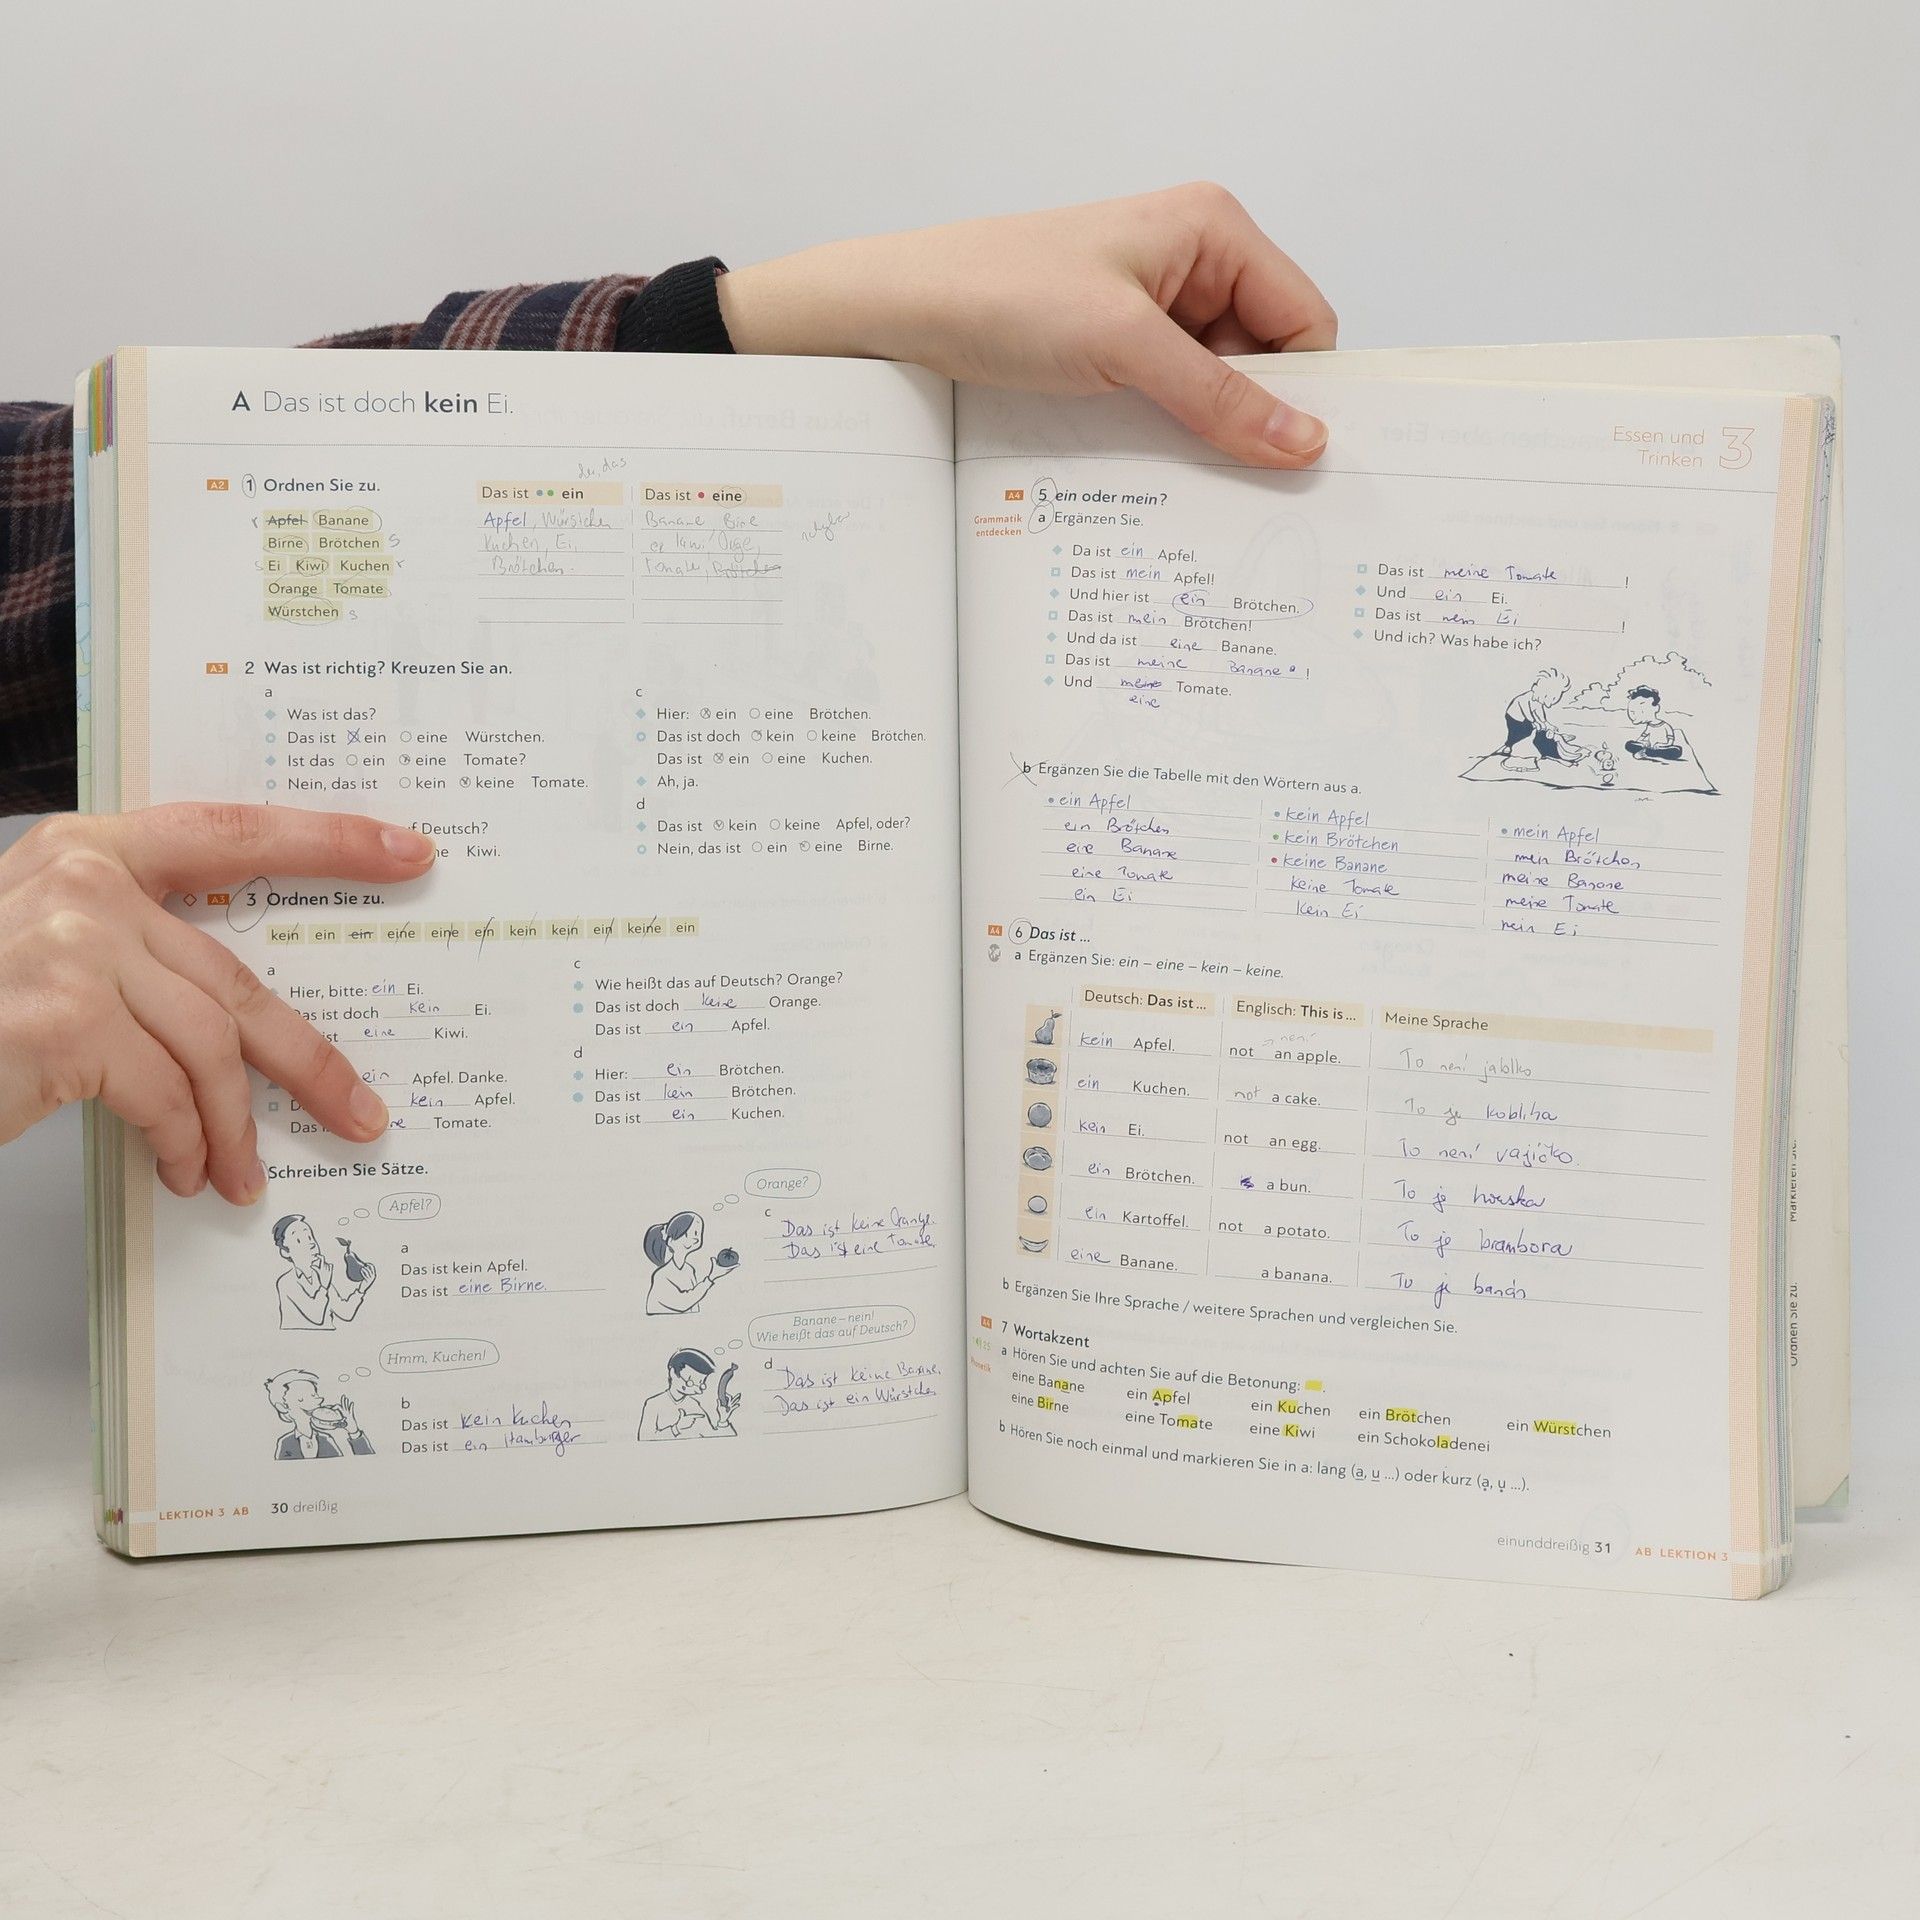 A Das ist doch kein Ei.
A2 1 Ordnen Sie zu.
Das ist ein
Das ist eine
Apfel Banane
Birne Brötchen s
s Ei Kiwi Kuchen r
Orange Tomate
Würstchen s
Apfel, Würstchen
Kuchen, Ei,
Brötchen.
Banane, Birne
Tomate, Brötchen
A3 2 Was ist richtig? Kreuzen Sie an.
a
Was ist das?
Das ist ein eine Würstchen.
Ist das ein eine Tomate?
Nein, das ist kein keine Tomate.
f Deutsch?
ne Kiwi.
c
Hier: ein eine Brötchen.
Das ist doch kein keine Brötchen.
Das ist ein eine Kuchen.
Ah, ja.
d
Das ist kein keine Apfel, oder?
Nein, das ist ein eine Birne.
A3 3 Ordnen Sie zu.
kein ein ein eine eine ein kein kein ein keine ein
a
Hier, bitte: ein Ei.
Das ist doch kein Ei.
ist eine Kiwi.
ein Apfel. Danke.
D kein Apfel.
Das i ne Tomate.
c
Wie heißt das auf Deutsch? Orange?
Das ist doch keine Orange.
Das ist ein Apfel.
d
Hier: ein Brötchen.
Das ist kein Brötchen.
Das ist ein Kuchen.
Schreiben Sie Sätze.
Apfel?
a
Das ist kein Apfel.
Das ist eine Birne.
Hmm, Kuchen!
b
Das ist kein Kuchen
Das ist ein Hamburger
Orange?
c
Das ist keine Orange.
Das ist eine Tomate.
Banane – nein!
Wie heißt das auf Deutsch?
d
Das ist keine Banane.
Das ist ein Würstchen
LEKTION 3 AB 30 dreißig
Essen und
Trinken 3
A4 5 ein oder mein?
Grammatik
entdecken
a Ergänzen Sie.
Da ist ein Apfel.
Das ist mein Apfel!
Und hier ist ein Brötchen.
Das ist mein Brötchen!
Und da ist eine Banane.
Das ist meine Banane!
Und meine Tomate.
eine
Das ist meine Tomate!
Und ein Ei.
Das ist mein Ei!
Und ich? Was habe ich?
b Ergänzen Sie die Tabelle mit den Wörtern aus a.
ein Apfel
ein Brötchen
eine Banane
eine Tomate
ein Ei
kein Apfel
kein Brötchen
keine Banane
keine Tomate
kein Ei
mein Apfel
mein Brötchen
meine Banane
meine Tomate
mein Ei
A4 6 Das ist ...
a Ergänzen Sie: ein – eine – kein – keine.
Deutsch: Das ist ... Englisch: This is ... Meine Sprache
není
kein Apfel. not an apple. To není jablko
ein Kuchen. not a cake. To je kobliha
kein Ei. not an egg. To není vajíčko.
ein Brötchen. a bun. To je houska
ein Kartoffel. not a potato. To je brambora
eine Banane. a banana. To je banán
b Ergänzen Sie Ihre Sprache / weitere Sprachen und vergleichen Sie.
A4 7 Wortakzent
Phonetik
a Hören Sie und achten Sie auf die Betonung: .
eine Banane ein Apfel ein Kuchen ein Brötchen ein Würstchen
eine Birne eine Tomate eine Kiwi ein Schokoladenei
b Hören Sie noch einmal und markieren Sie in a: lang (a, u ...) oder kurz (ạ, ụ ...).
einunddreißig 31 AB LEKTION 3
Markieren Sie.
Ordnen Sie zu.